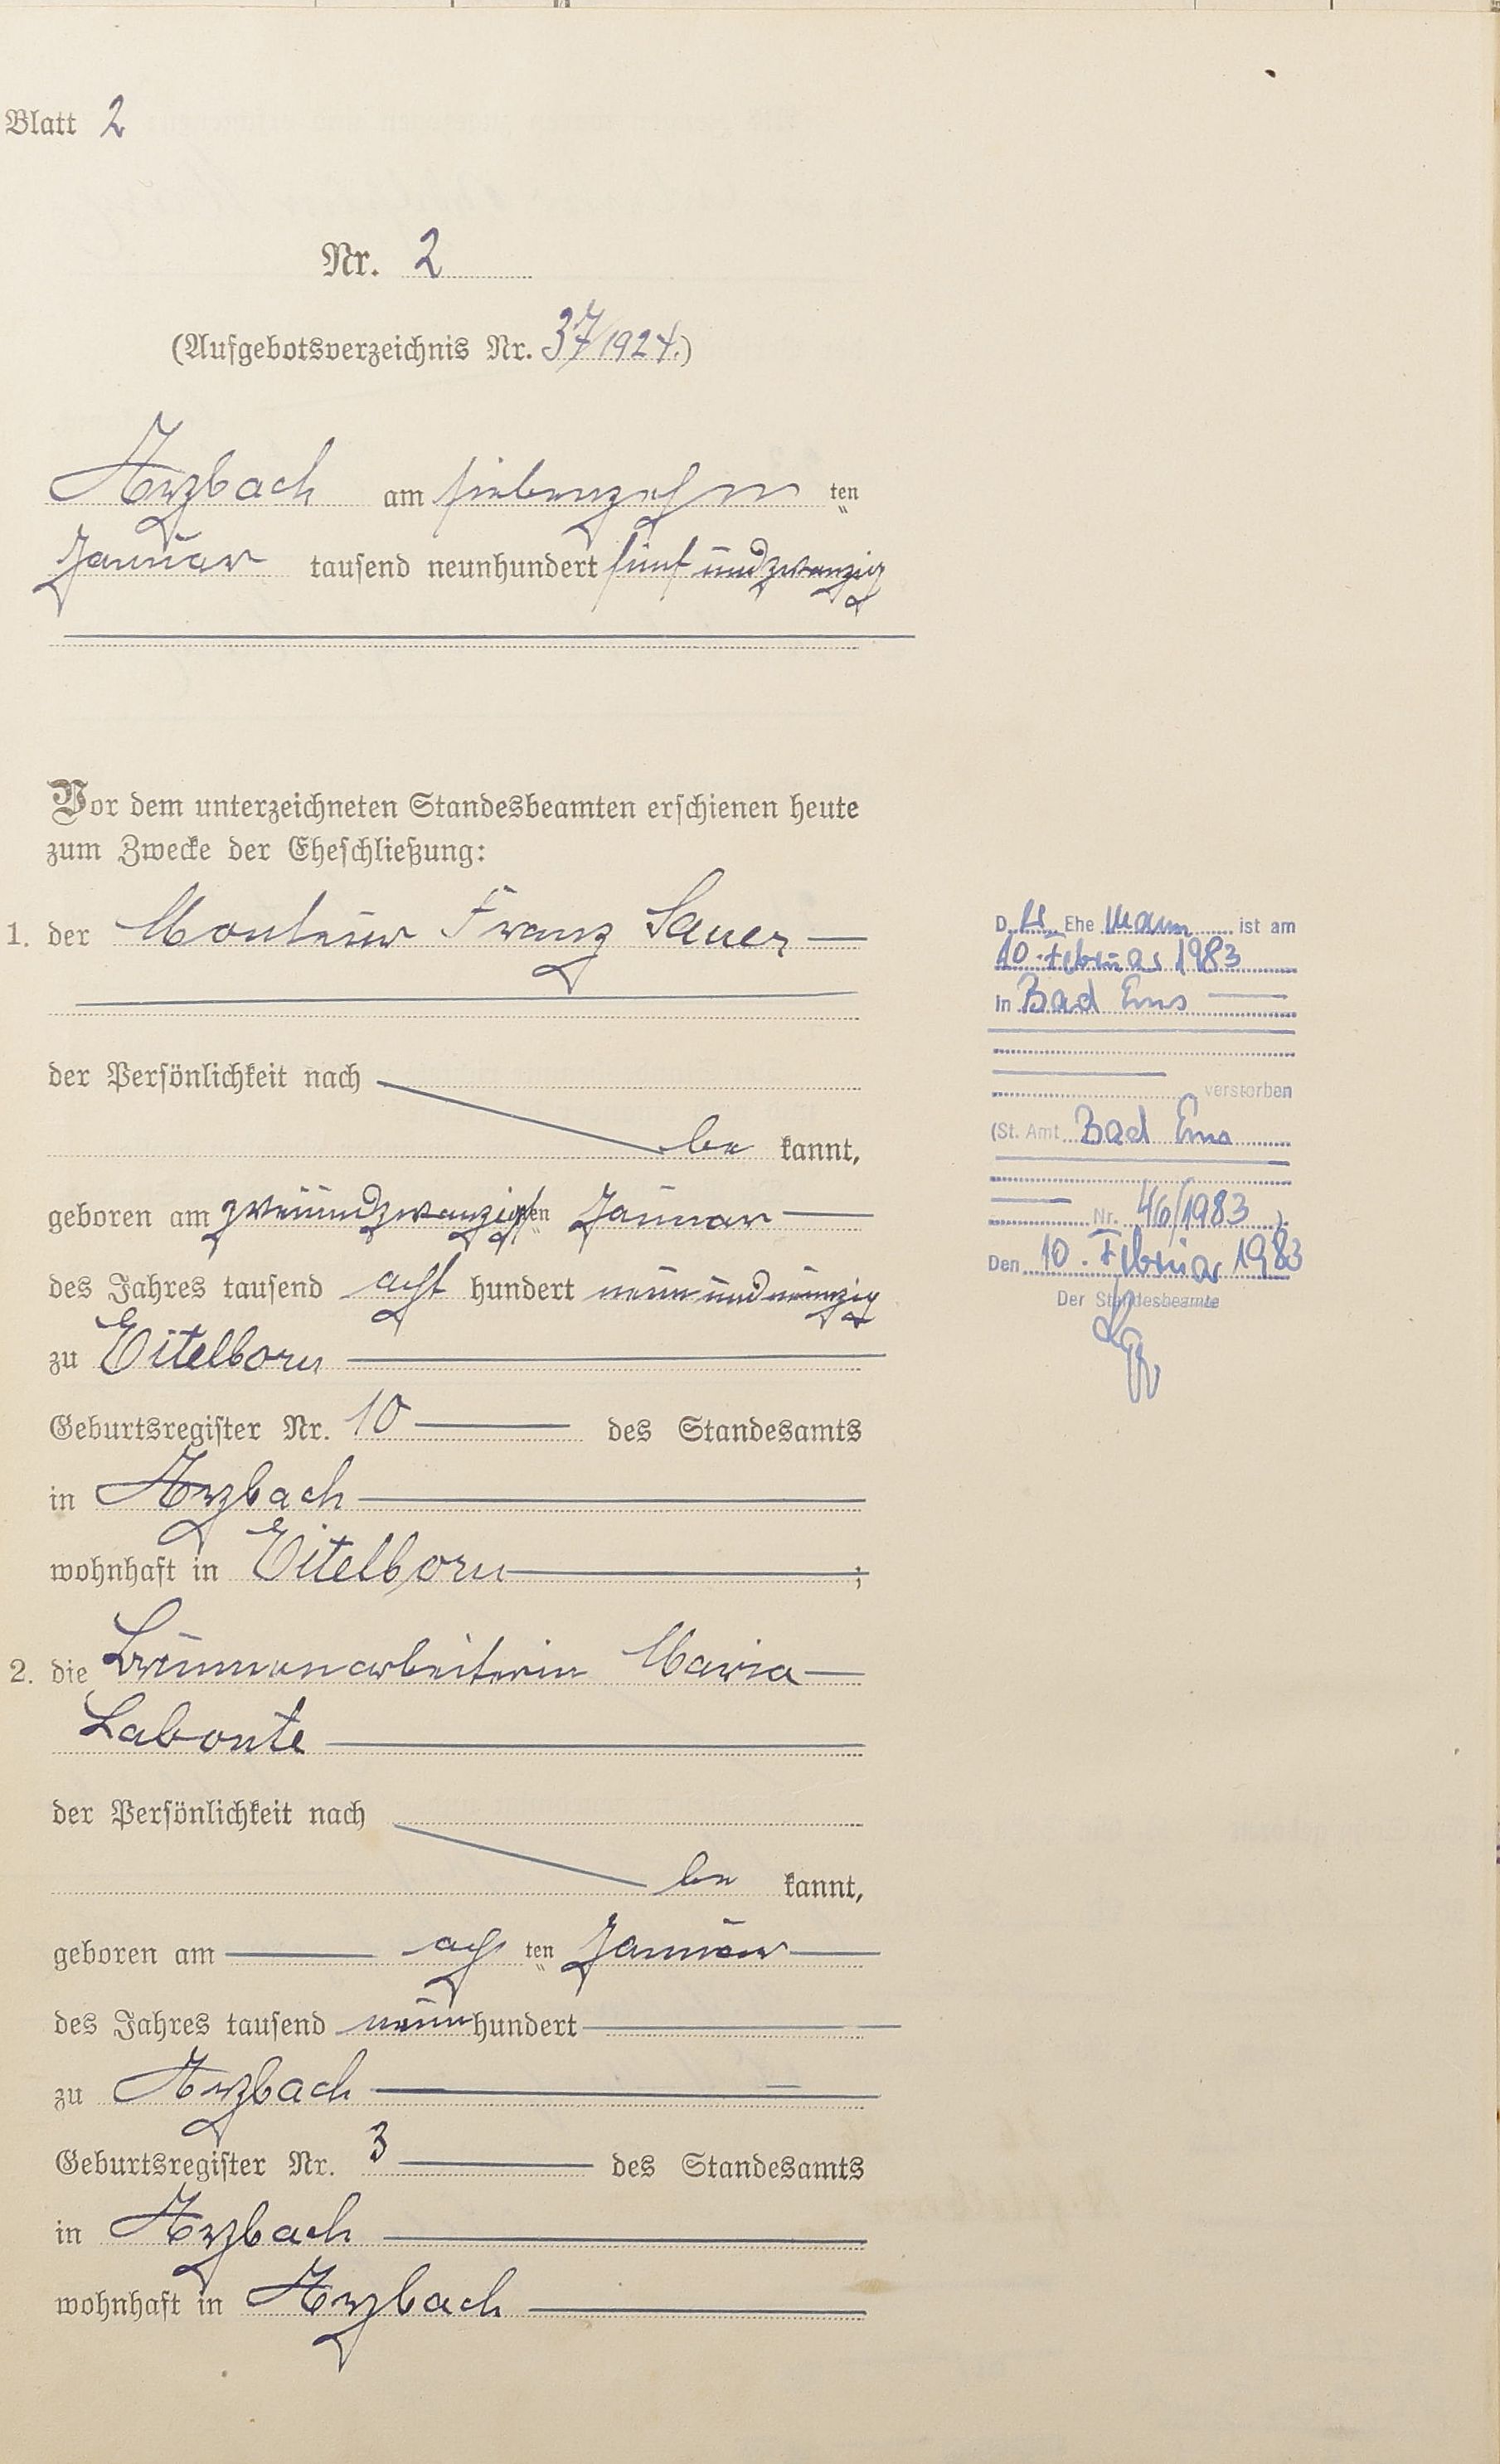 Blatt 2
Nr. 2
(Aufgebotsverzeichnis Nr. 37/1924.)
Arzbach am siebenzehnten
Januar tausend neunhundert fünfundzwanzig
Vor dem unterzeichneten Standesbeamten erschienen heute
zum Zwecke der Eheschließung:
1. der Monteur Franz Sauer
der Persönlichkeit nach
be kannt,
geboren am zweiundzwanzigsten Januar
des Jahres tausend acht hundert neunundneunzig
zu Eitelborn
Geburtsregister Nr. 10 des Standesamts
in Arzbach
wohnhaft in Eitelborn;
2. die Brunnenarbeiterin Maria
Labonte
der Persönlichkeit nach
be kannt,
geboren am achten Januar
des Jahres tausend neunhundert
zu Arzbach
Geburtsregister Nr. 3 des Standesamts
in Arzbach
wohnhaft in Arzbach
D. er Ehe mann ist am
10. Februar 1983
in Bad Ems
verstorben
(St. Amt Bad Ems
Nr. 46/1983)
Den 10. Februar 1983
Der Standesbeamte